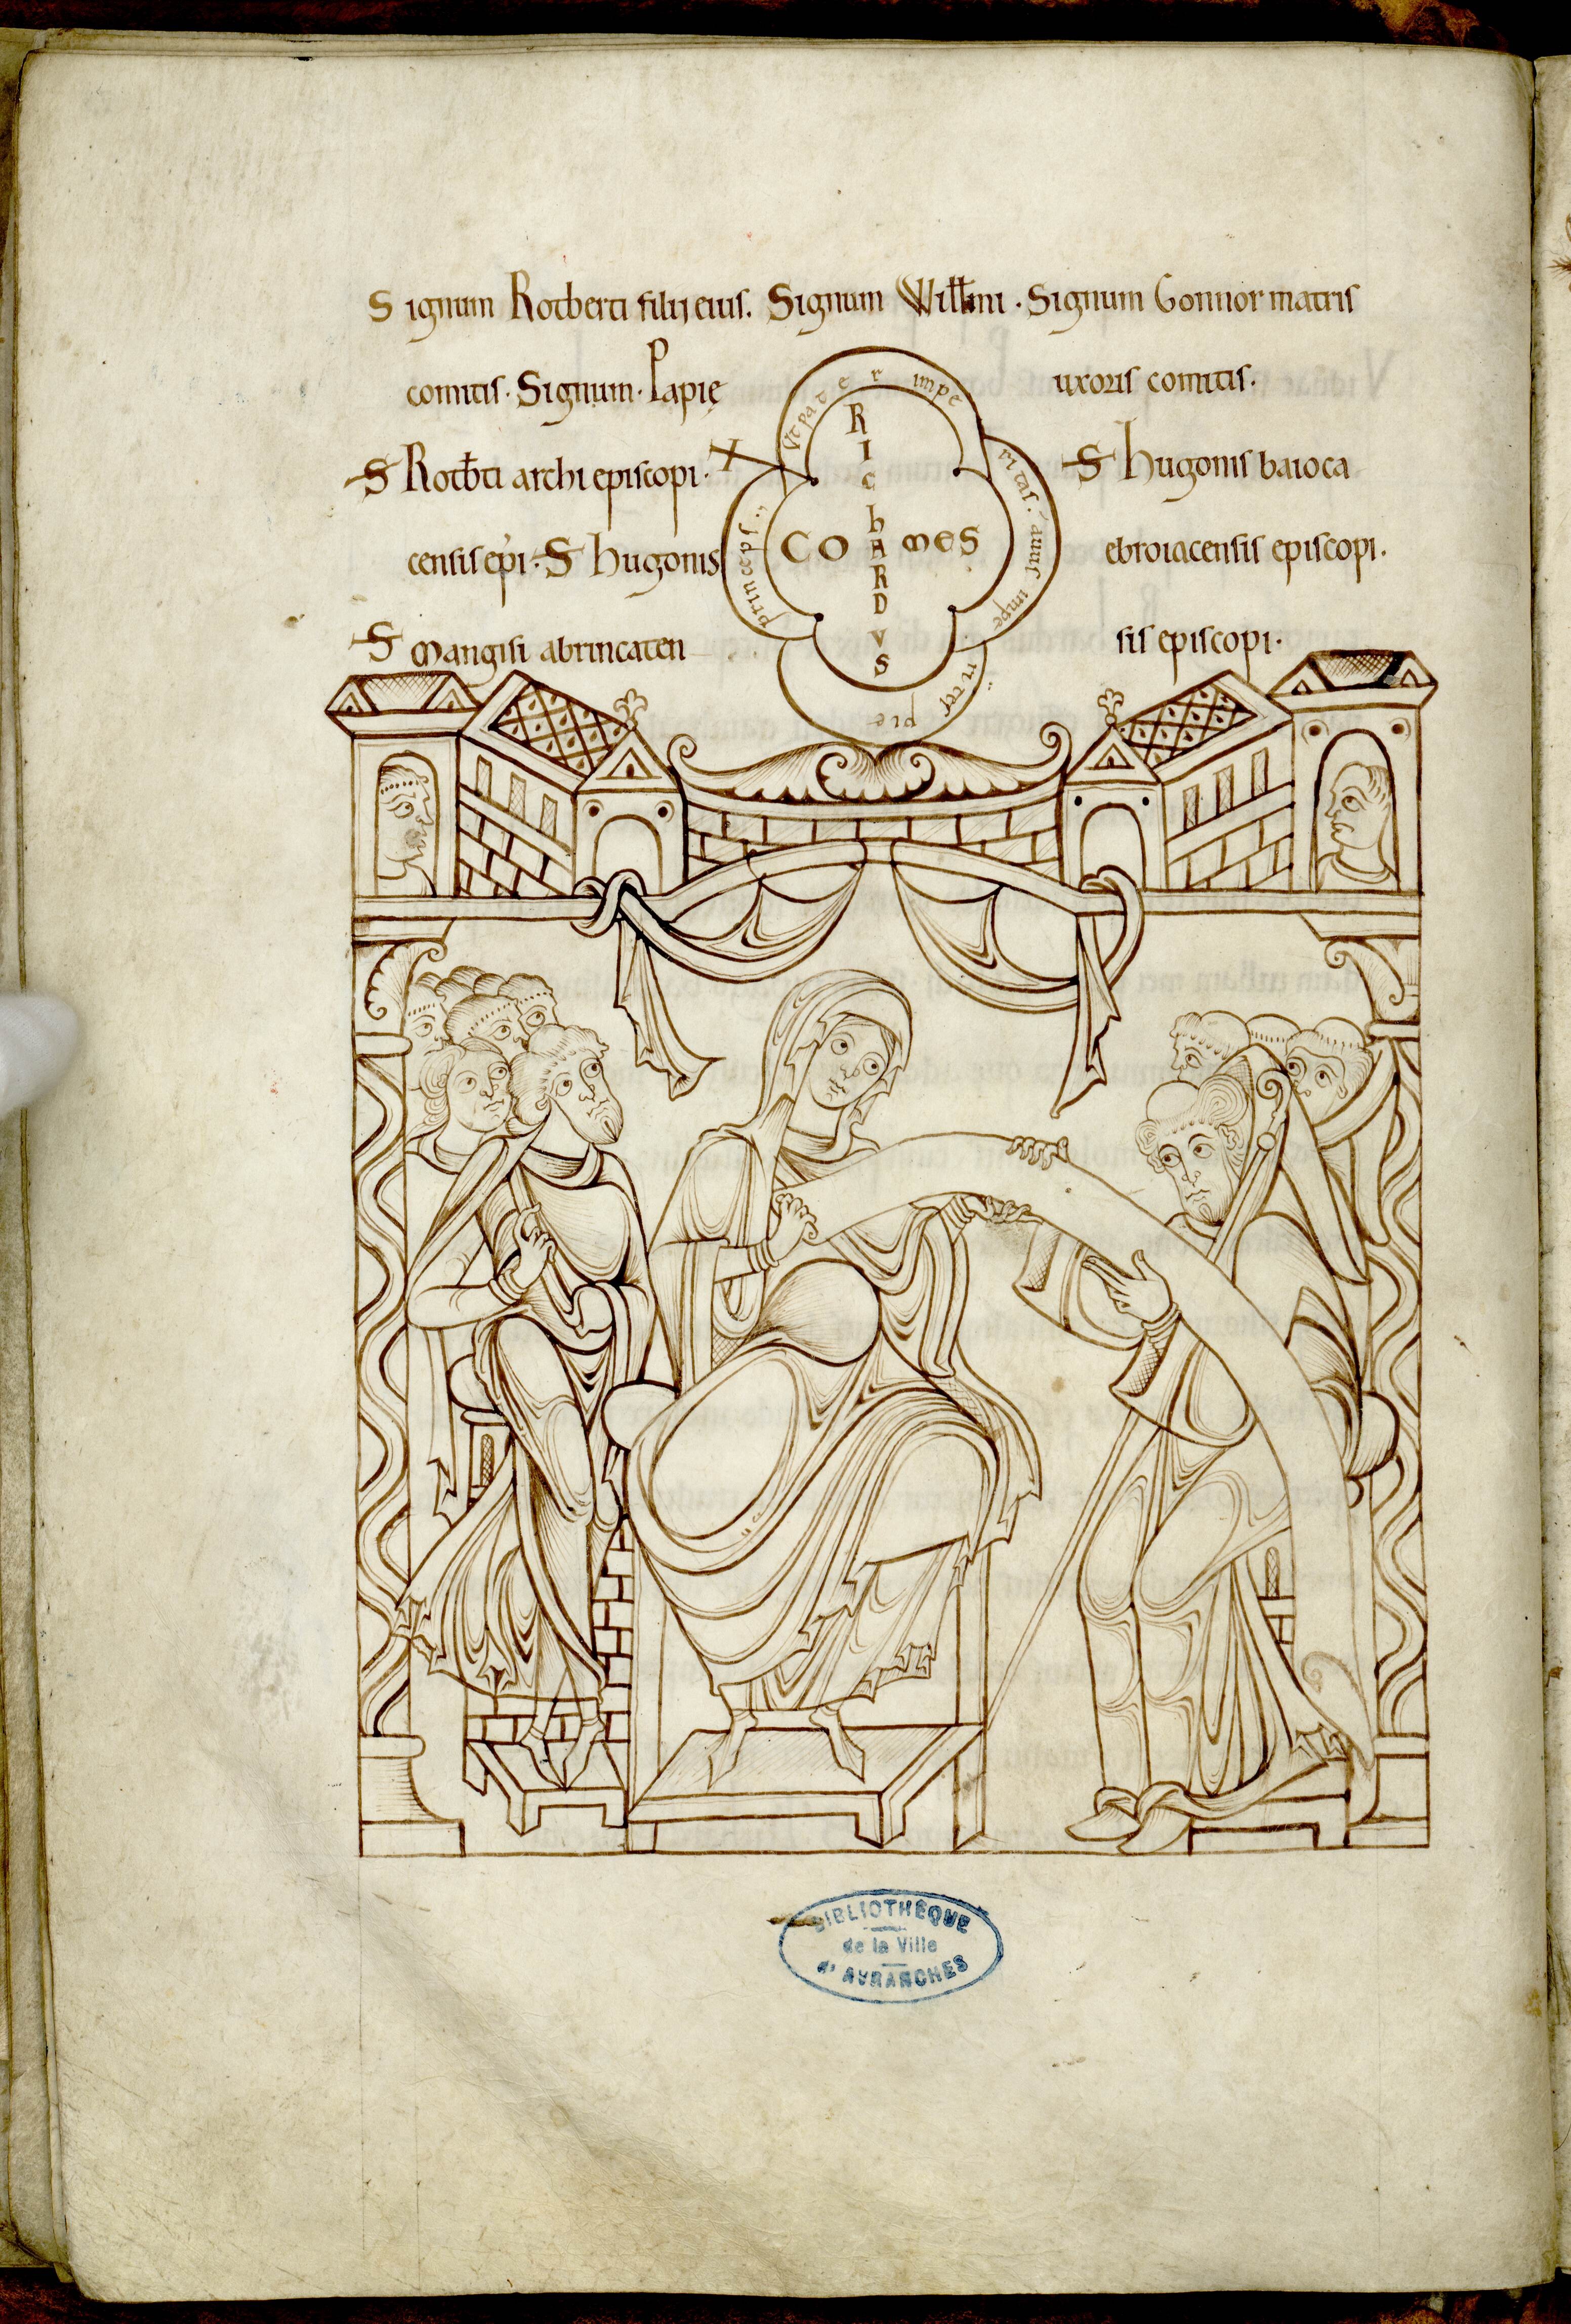 Signum Rotberti filij eius. Signum Willmi. Signum Gonnor matris
comitis. Signum. Papię uxoris comitis.
S Rotbti archi episcopi. S hugonis baioca
censis epi. S hugonis ebroiacensis episcopi.
S Mangisi abrincaten sis episcopi.
RICHARDVS
COMES
Vt pater impe
ritas. annis impe
pie
princeps
BIBLIOTHÈQUE
de la Ville
d'AVRANCHES